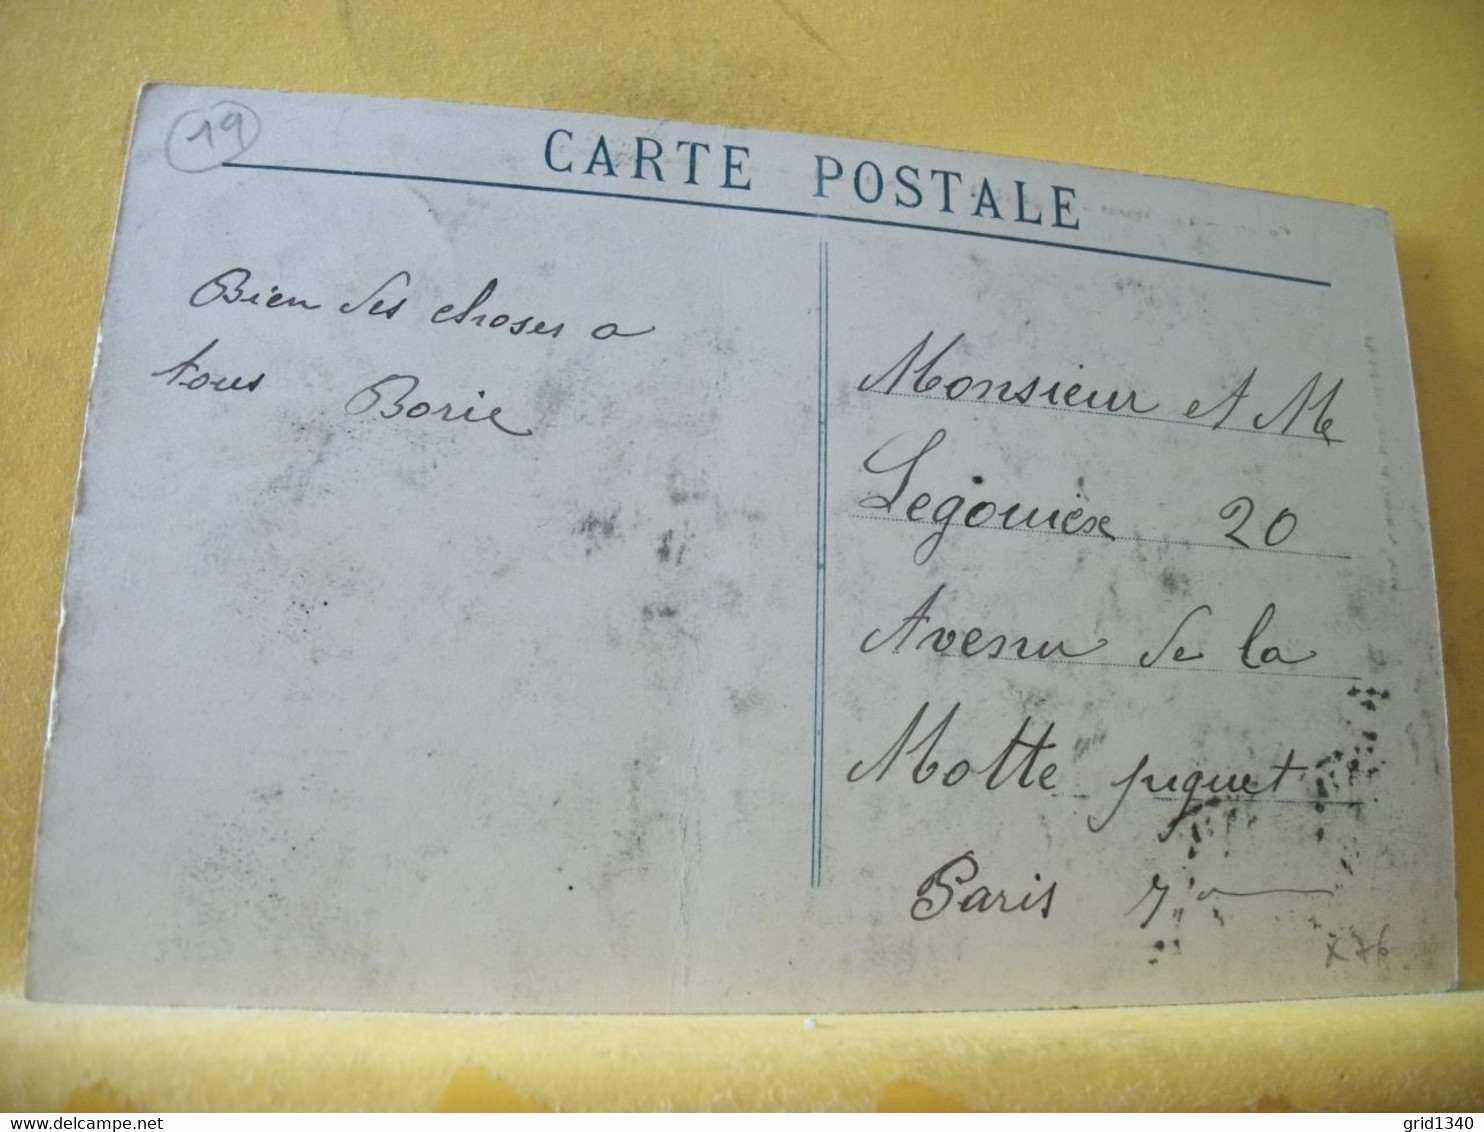 19
CARTE POSTALE
Bien des choses a
tous Borie
Monsieur et Me
Legouiex 20
Avenu de la
Motte piquet
Paris 7e
X76
grid1340